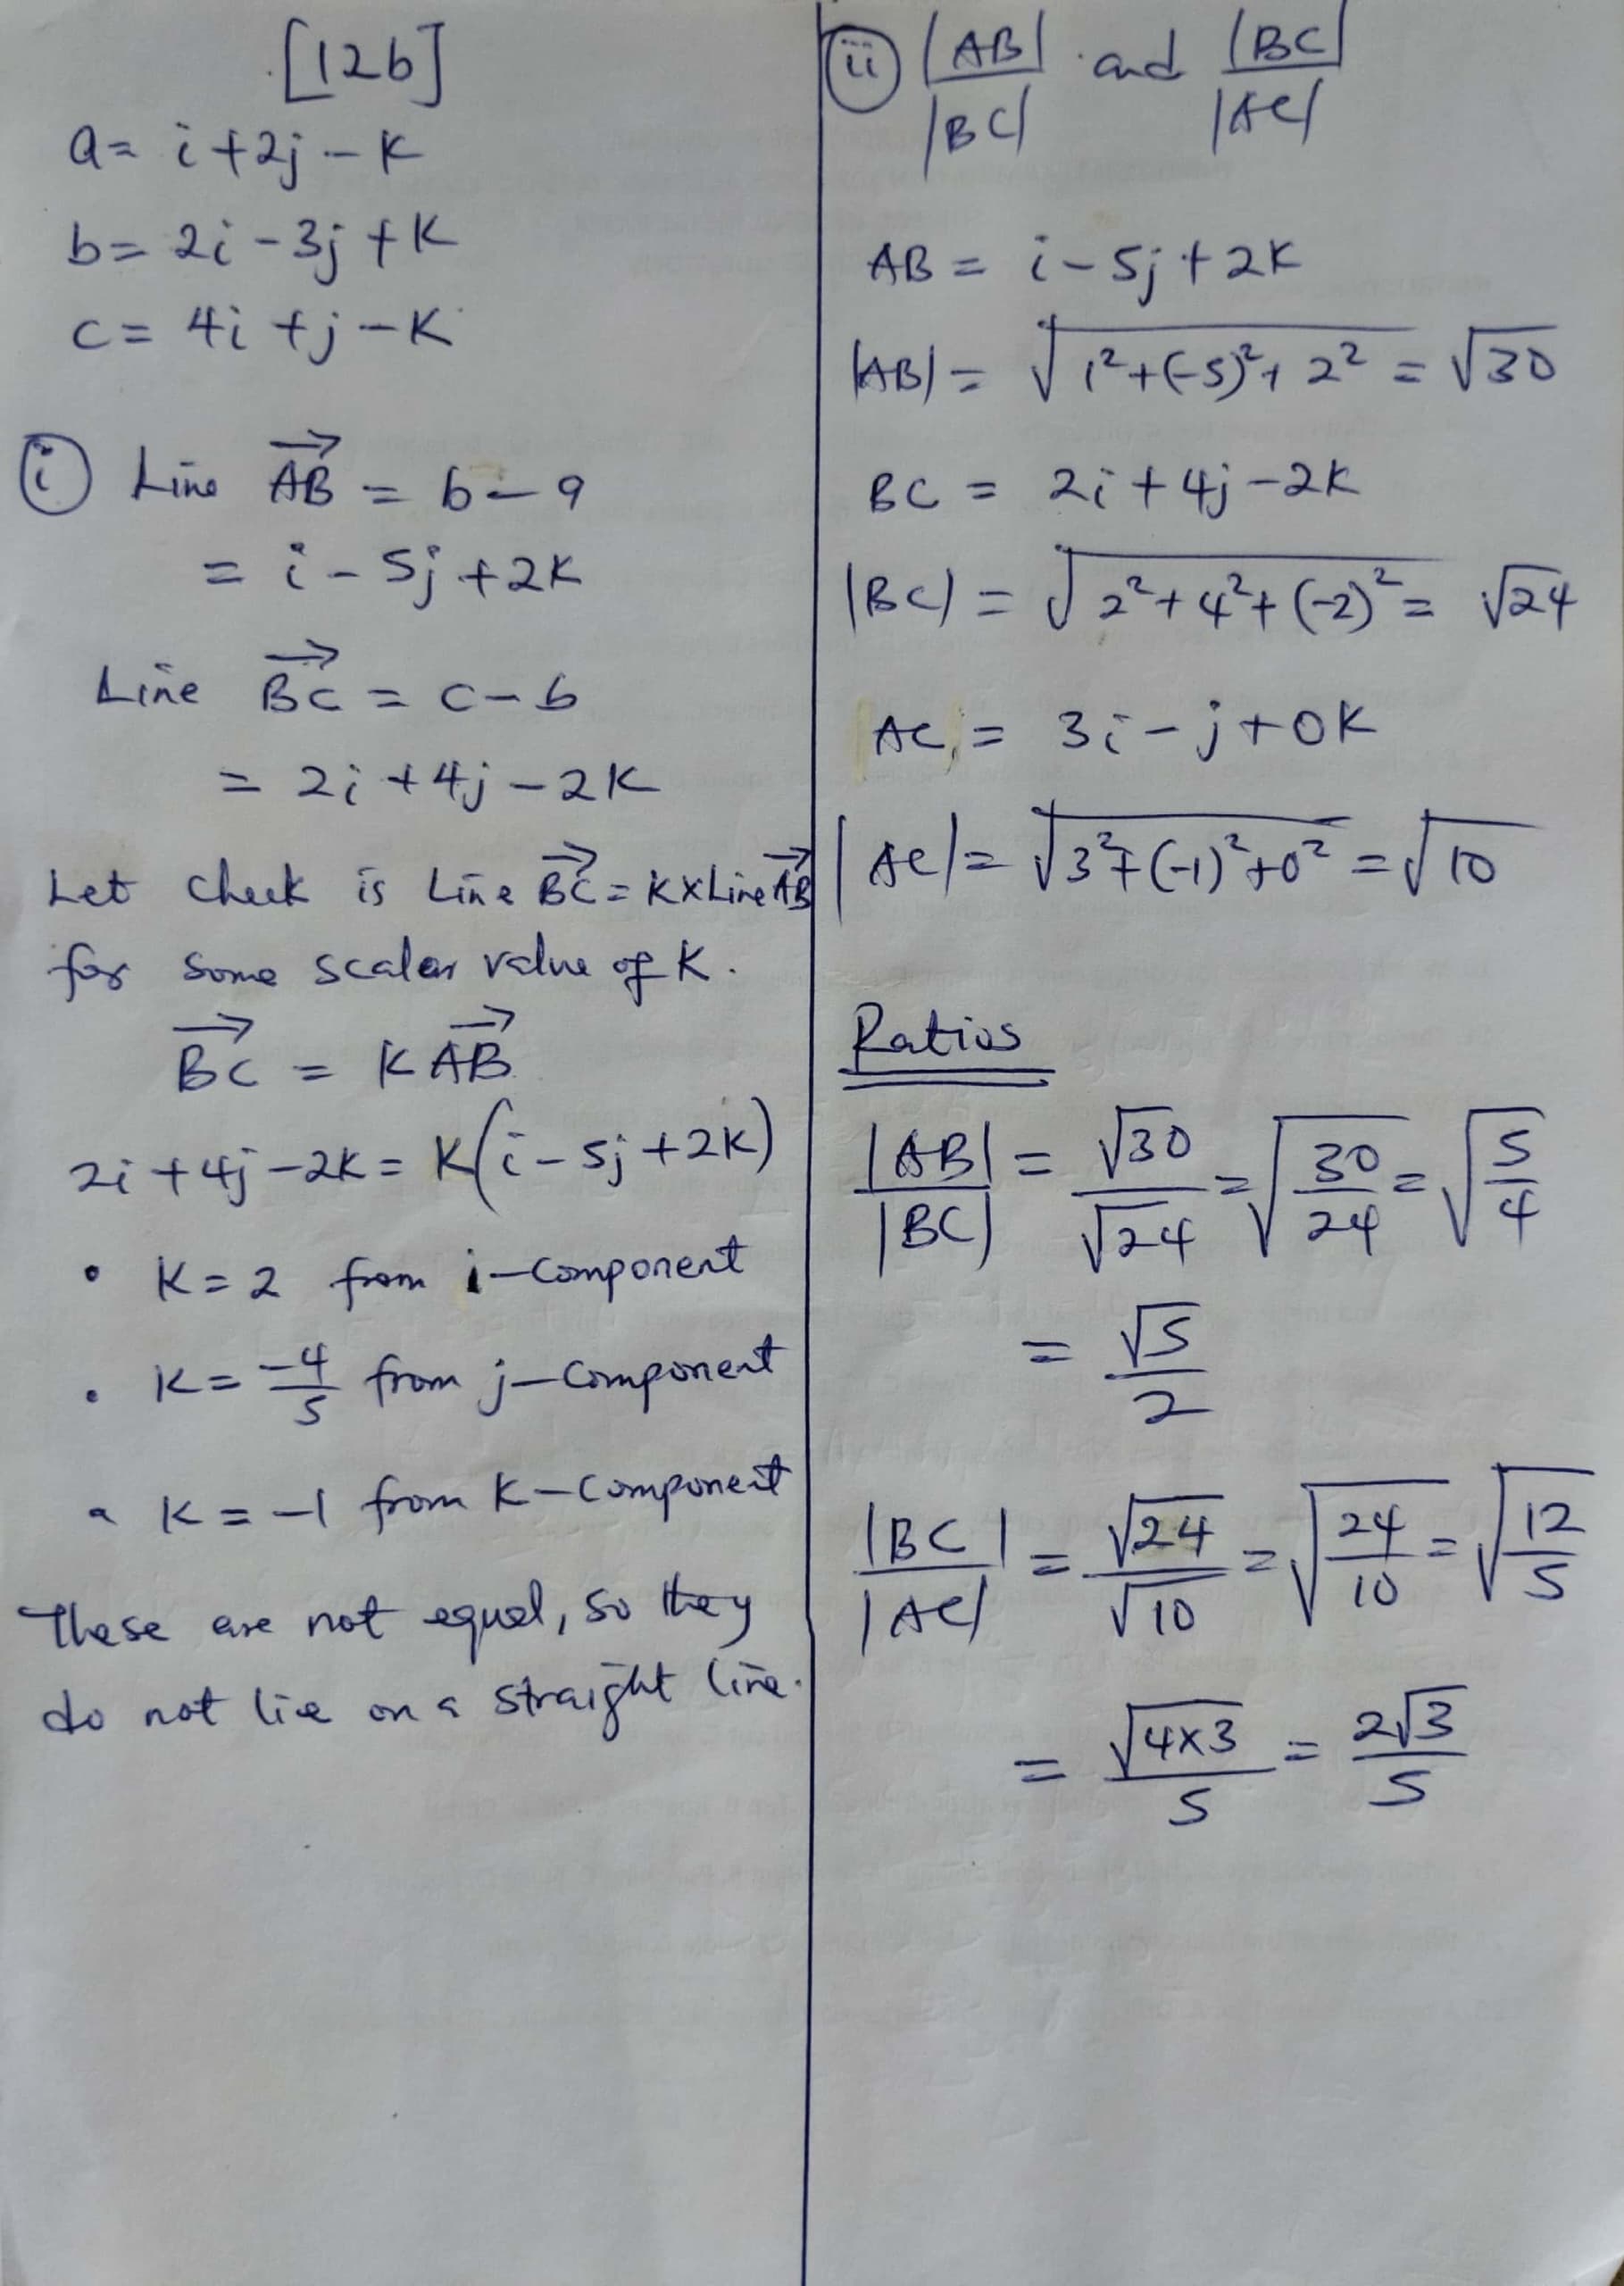 [12b]
a = i + 2j - k
b = 2i - 3j + k
c = 4i + j - k
(i) Line AB→ = b - a
= i - 5j + 2k
Line BC→ = c - b
= 2i + 4j - 2k
Let check is Line BC→ = k x Line AB→
for some scalar value of k.
BC→ = k AB→
2i + 4j - 2k = k(i - 5j + 2k)
• k = 2 from i-component
• k = -4/5 from j-component
• k = -1 from k-component
These are not equal, so they
do not lie on a straight line.
(ii) |AB|/|BC| and |BC|/|AC|
AB = i - 5j + 2k
|AB| = √(1² + (-5)² + 2²) = √30
BC = 2i + 4j - 2k
|BC| = √(2² + 4² + (-2)²) = √24
AC = 3i - j + 0k
|AC| = √(3² + (-1)² + 0²) = √10
Ratios
|AB|/|BC| = √30/√24 = √(30/24) = √(5/4)
= √5/2
|BC|/|AC| = √24/√10 = √(24/10) = √(12/5)
= √(4x3)/5 = 2√3/5